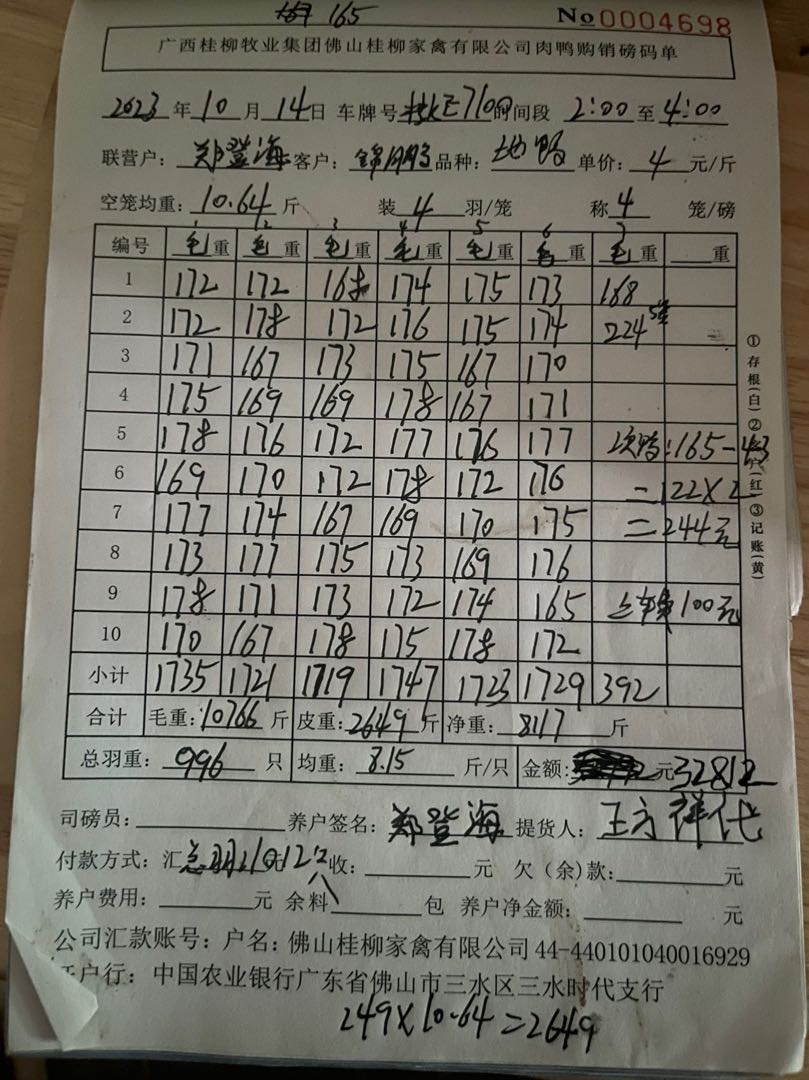 165 No 0004698
广西桂柳牧业集团佛山桂柳家禽有限公司肉鸭购销磅码单
2023 年 10 月 14 日 车牌号 E7100 时间段 2:00 至 4:00
联营户: 郑登海 客户: 锦鹏 品种: 地鸭 单价: 4 元/斤
空笼均重: 10.64 斤 装 4 羽/笼 称 4 笼/磅
1 2 3 4 5 6 7
编号 毛重 毛重 毛重 毛重 毛重 毛重 毛重 重
1 172 172 168 174 175 173 168
2 172 178 172 176 175 174 224
3 171 167 173 175 167 170
4 175 169 169 178 167 171
5 178 176 172 177 176 177 次鸭:165-43
6 169 170 172 178 172 176 =122×2
7 177 174 167 169 170 175 =244元
8 173 177 175 173 169 176
9 178 171 173 172 174 165 上车费100元
10 170 167 178 175 178 172
小计 1735 1721 1719 1747 1723 1729 392
合计 毛重: 10766 斤 皮重: 2649 斤 净重: 8117 斤
总羽重: 996 只 均重: 8.15 斤/只 金额: 元 32812
司磅员: 养户签名: 郑登海 提货人: 王方祥代
付款方式: 汇 总羽 1012只 收: 元 欠(余)款: 元
养户费用: 元 余料 八 包 养户净金额: 元
公司汇款账号: 户名: 佛山桂柳家禽有限公司 44-440101040016929
户行: 中国农业银行广东省佛山市三水区三水时代支行
249×10.64=2649
①存根(白)②(红)③记账(黄)